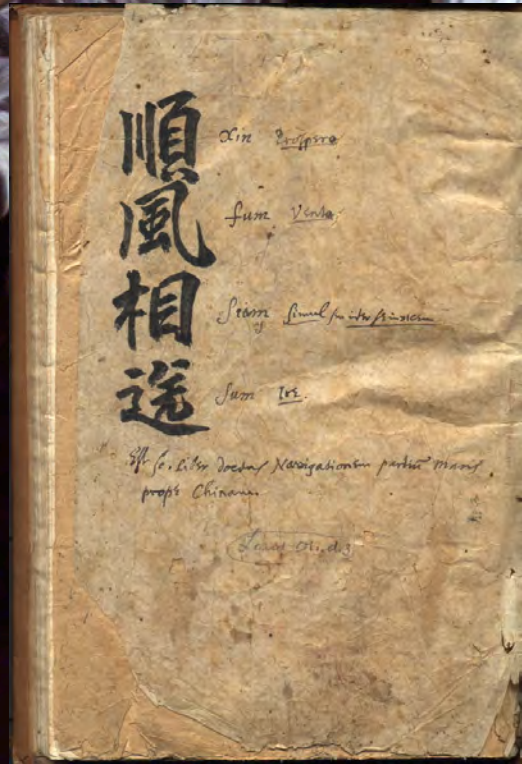 順風相送
Xin Prospero
fum Vento
Siam Simul inter se invicem
Sum Ire.
Est sc. Liber docens Navigationem partiũ Maris
prope Chinam.